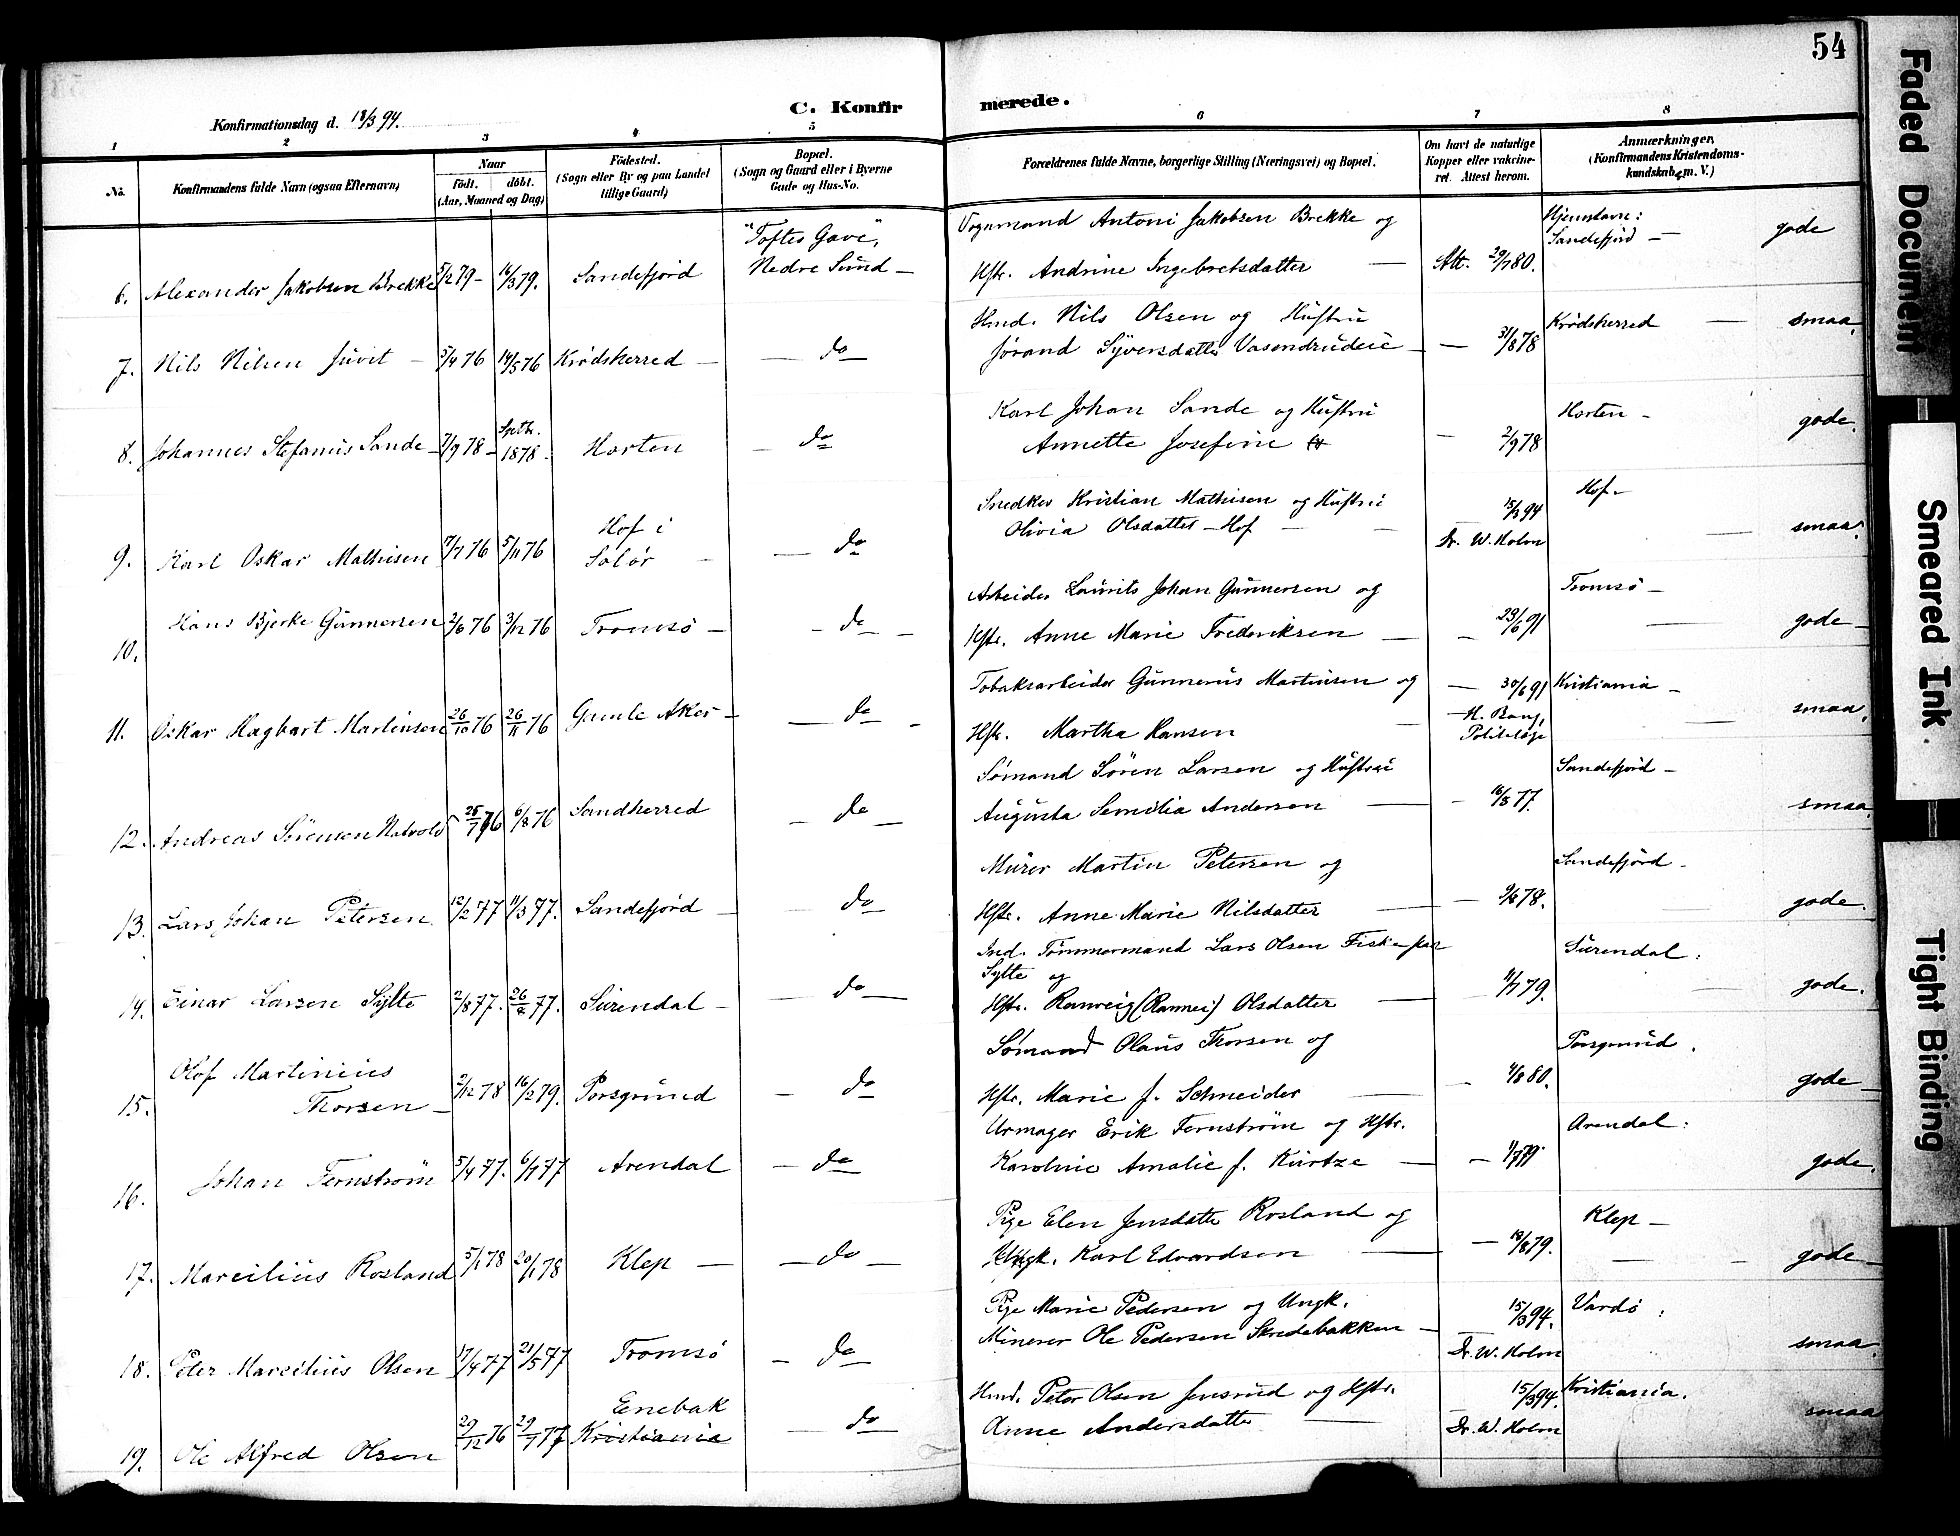 54
Konfirmationsdag d. 18/3 94.
C. Konfirmerede.
1 2 3 4 5 6 7 8
No.
Konfirmandens fulde Navn (ogsaa Efternavn)
Naar
födt. döbt.
(Aar, Maaned og Dag)
Födested.
(Sogn eller By og paa Landet
tillige Gaard)
Bopæl.
(Sogn og Gaard eller i Byerne
Gade og Hus-No.
Forældrenes fulde Navne, borgerlige Stilling (Næringsvei) og Bopæl.
Om havt de naturlige
Kopper eller vakcine-
ret. Attest herom.
Anmærkninger,
(Konfirmandens Kristendoms-
kundskab, m. V.)
6. Alexander Jakobsen Brekke 5/2 79 - 16/3 79. Sandefjord
"Toftes Gave",
Nedre Sund -
Vognmand Antoni Jakobsen Brekke og
Hstr. Andrine Ingebretsdatter —
Att. 29/7 80.
Hjemstavn:
Sandefjord — gode
7. Nils Nilsen Juvet - 5/4 76 14/5 76 Krödsherred - — do
Hmd. Nils Olsen og Hustru
Jörand Syversdatter Vasendrudeie -
— 31/8 78 Krödsherred — smaa,
8. Johannes Stefanus Sande - 7/9 78 - Sptbr.
1878. Horten — do
Karl Johan Sande og Hustru
Annette Josefine
— 2/9 78 Horten - gode.
9. Karl Oskar Mathisen 7/7 76 5/11 76 Hof i
Solör - — do
Snedker Kristian Mathisen og Hustru
Olivia Olsdatter - Hof —
15/3 94
Dr. W. Holm
Hof - smaa.
10. Hans Bjerke Gunnersen 2/6 76 3/12 76 Tromsö - - do -
Arbeider Laurits Johan Gunnersen og
Hstr. Anne Marie Frederiksen —
- 23/6 91 Tromsö - gode -
11. Oskar Hagbart Martinsen 26/10 76 26/11 76 Gamle Aker - — do -
Tobaksarbeider Gunnerius Martinsen og
Hstr. Martha Hansen
— 30/6 91
H. Bang,
Politilæge
Kristiania - smaa,
12. Andreas Sörensen Natvold 25/7 76 6/8 76 Sandherred - do -
Sömand Sören Larsen og Hustru
Augusta Semilia Andersen —
- 16/5 77. Sandefjord - smaa
13. Lars Johan Petersen 12/2 77 11/3 77. Sandefjord - - do
Murer Martin Petersen og
Hstr. Anne Marie Nilsdatter —
- 9/6 78. Sandefjord - gode.
14. Einar Larsen Sylte 2/8 77. 26/8 77. Surendal - - do —
Ind. Tömmermand Lars Olsen Fiske paa
Sylte og
Hstr. Ranveig (Rannei) Olsdatter —
11/7 79. Surendal: gode.
15. Olof Martinius
Thorsen - 2/12 78 16/2 79. Porsgrund - do
Sömand Olaus Thorsen og
Hstr. Marie f. Schneider —
- 4/8 80. Porsgrund. gode -
16. Johan Fernström 5/4 77. 6/7 77 Arendal - do
Urmager Erik Fernström og Hstr.
Karoline Amalie f. Kurtze —
- 1/7 79. Arendal: gode.
17. Marcilius Rosland 5/1 78 20/1 78 Klep — - do -
Pige Elen Jensdatter Rosland og
Ungk. Karl Edvardsen —
— 13/8 79. Klep - gode -
18. Peter Marcilius Olsen 17/4 77 21/5 77 Tromsö - do
Pige Marie Pedersen og Ungk.
Minerer Ole Pedersen Skredebakken -
15/3 94.
Dr. W. Holm
Vardö: smaa.
19. Ole Alfred Olsen 29/12 76 29/7 77 Enebak
Kristiania — do
Hmd. Peter Olsen Jensrud og Hstr.
Anne Andersdatter —
15/3 94.
Dr. W. Holm
Kristiania. smaa
Faded Document
Smeared Ink.
Tight Binding